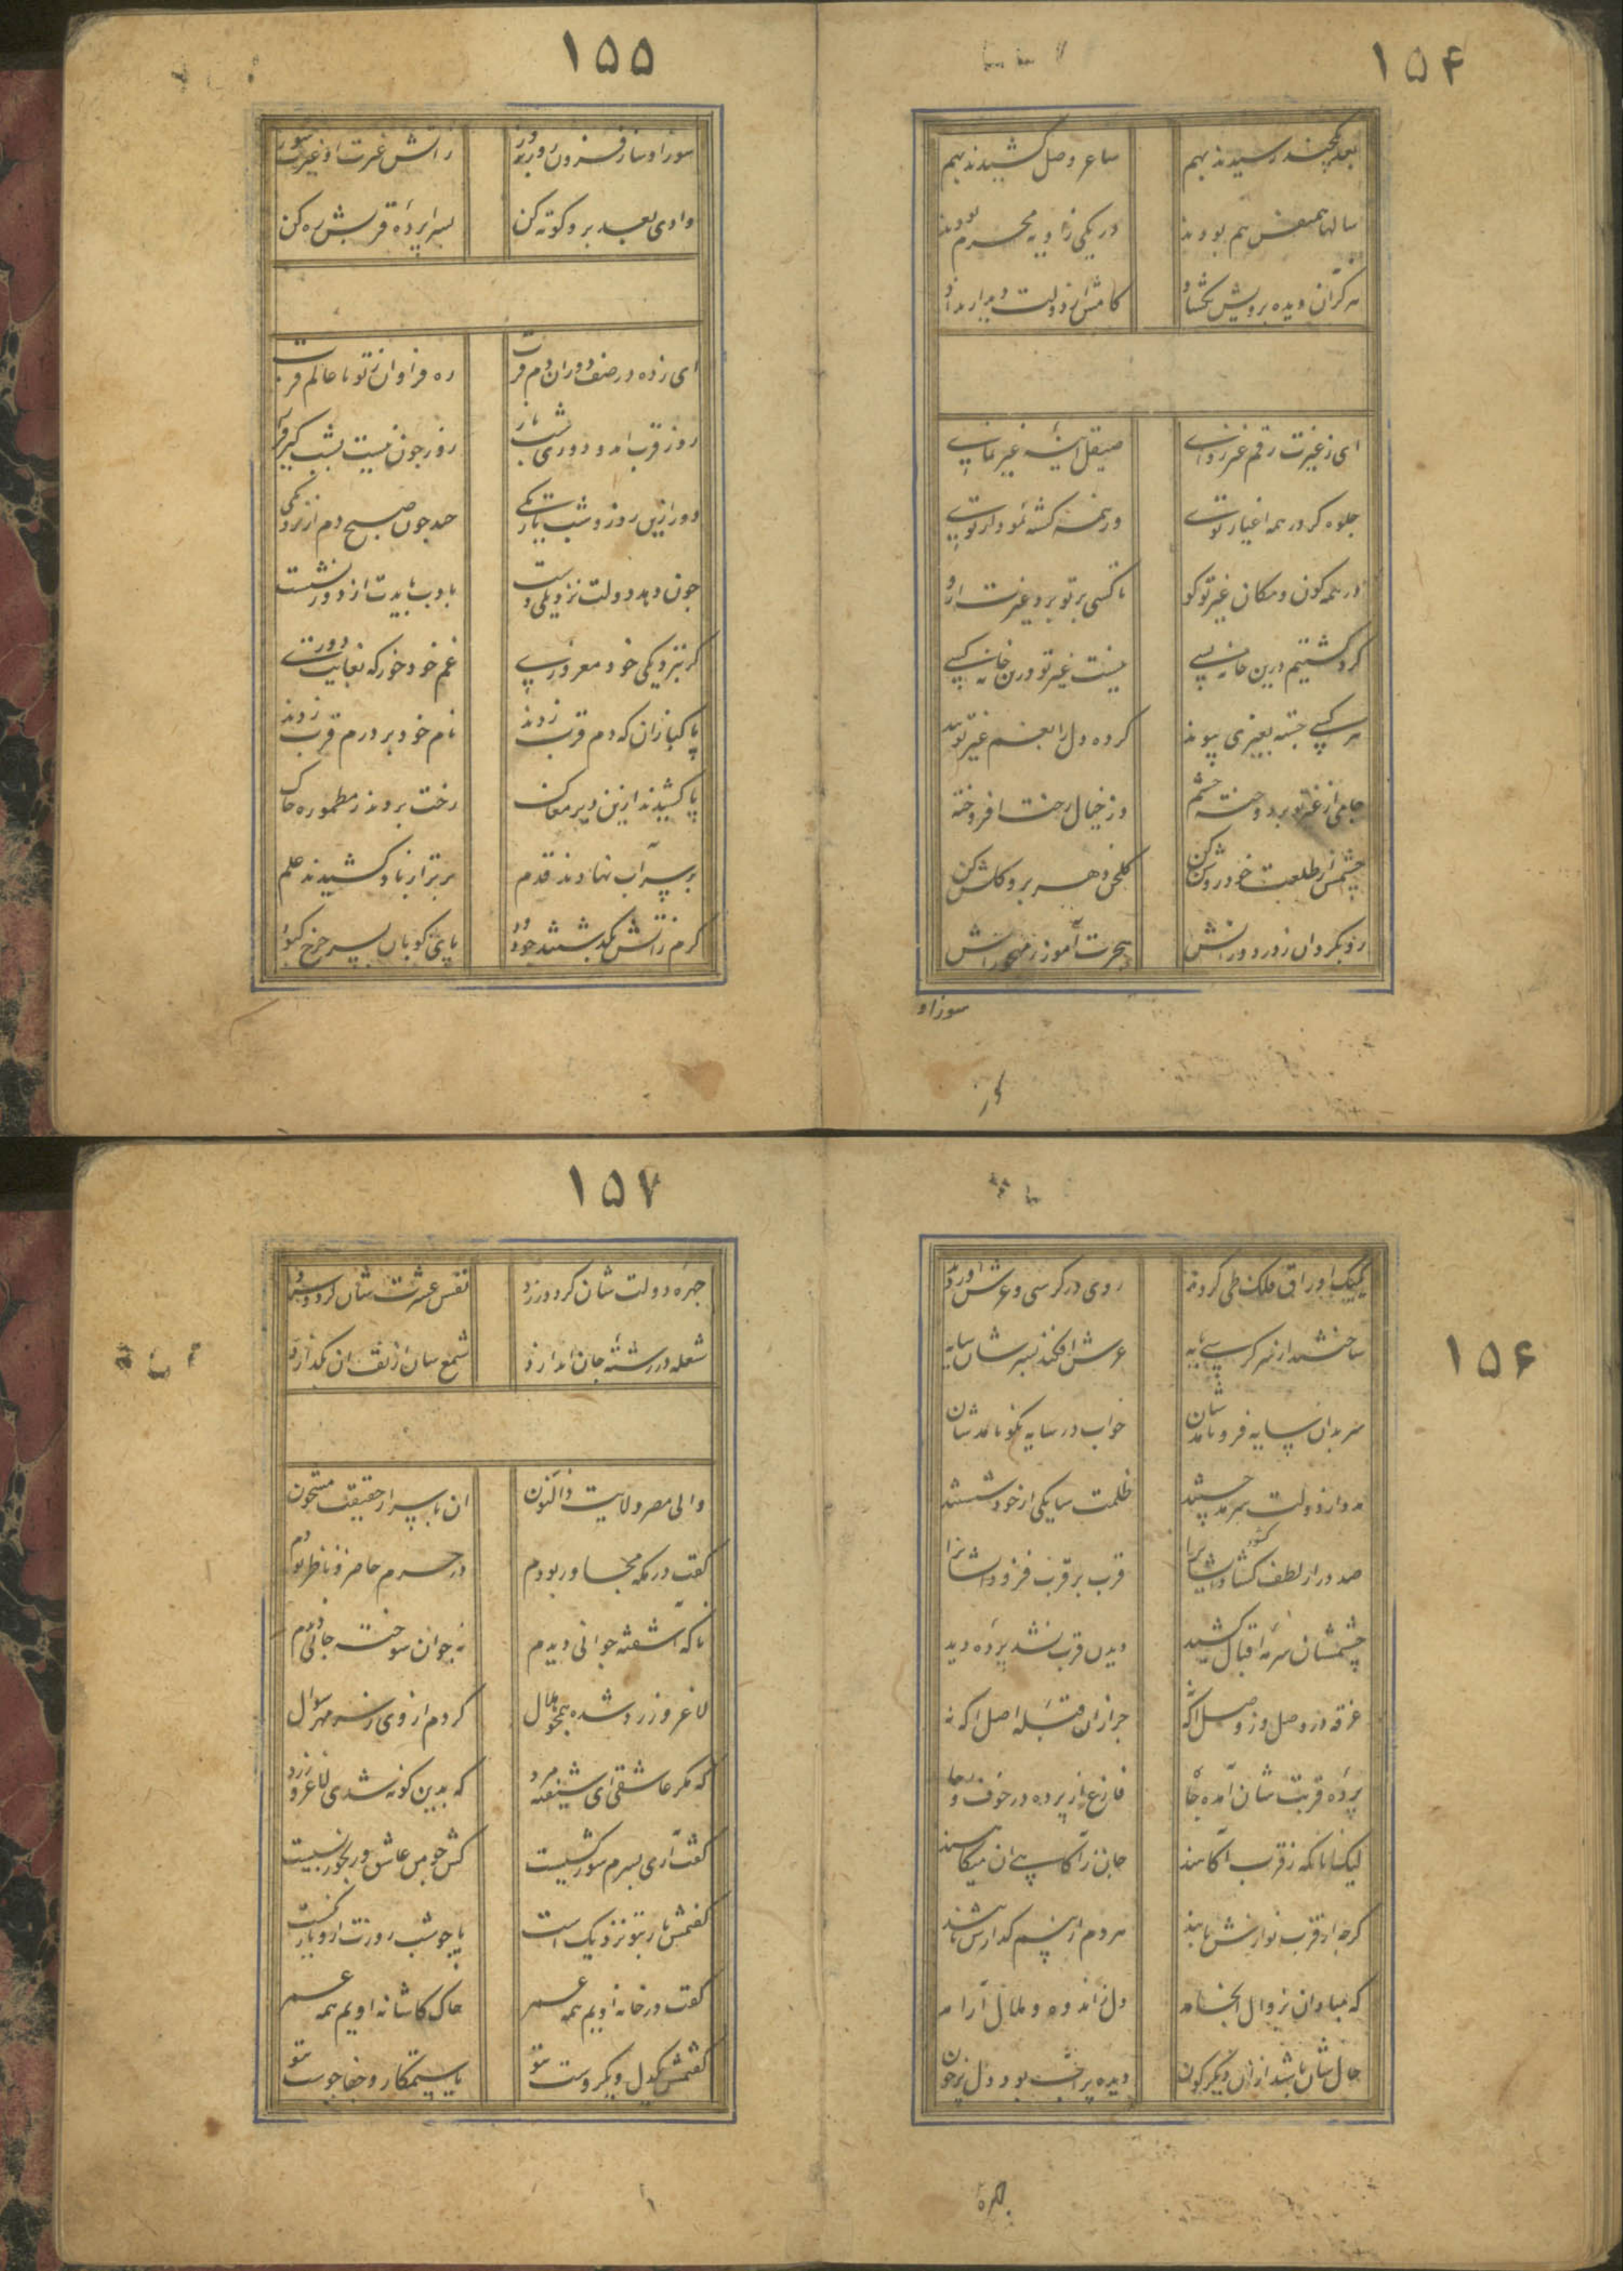 ۱۵۴
بعد یکچند رسیدند بهم ساغر وصل کشیدند بهم
سالها همنفس هم بودند در یکی زاویه محرم بودند
هر کز آن دیده برویش بکشاد کامش از دولت دیدار نداد
ای ز غیرت رقم غیر زدای صیقل آینهٔ غیر نمای
جلوه کر در همه اغیار توئی در همه کشته نمودار توئی
در همه کون و مکان غیر تو کو تا کسی بر تو برد غیرت ازو
کرد کشتیم درین خانه بسی نیست غیر تو درین خانه کسی
هر کسی جسته بغیری پیوند کرده دل را بغم غیر تو بند
جامی از غیر تو بردوخته چشم وز خیال رخت افروخته
چشمش از طلعت خود روشن کن کلخن دهر برو کلشن کن
زو بکردان ز در دورانش هجرت آموز ز مهجورانش
سوز او
۱۵۵
سوز او ساز فزون روز بروز ز آتش غیرت او غیر بسوز
وادی بعد برو کوته کن بسراپردهٔ قربش ره کن
ای زده در صف دوران دم قرب ره فراوان ز تو تا عالم قرب
روز قرب آمد و دوری شب تار روز چون نیست بشب کیر قرار
دور ازین روز و شب تاریکی چند چون صبح دم از نزدیکی
چون دهد دولت نزدیکی دست بادب بایدت از دور نشست
کر بنزدیکی خود مغروری غم خود خور که بغایت دوری
پاکبازان که دم قرب زدند نام خود بر درم قرب زدند
پا کشیدند ازین دیر مغاک رخت بردند ز مطمورهٔ خاک
بر سر آب نهادند قدم برتر از باد کشیدند علم
کرم ز آتش بکذشتند چو دود پای کوبان بسر چرخ کبود
۱۵۶
یکبیک اوراق فلک طی کردند روی در کرسی و عرش آوردند
ساختند از سر کرسی پایه عرش افکند بسرشان سایه
سر بدان سایه فرو نامدشان خواب در سایه نکو نامدشان
مدد از دولت سرمد جستند ظلمت سایکی از خود شستند
صد در از لطف کشاد ایشانرا قرب بر قرب فزود ایشانرا
چشمشان سرمهٔ اقبال کشید دیدن قرب نشد پردهٔ دید
غرقه در وصل و ز وصل آکه نه جز از آن قبلهٔ اصل آکه نه
پردهٔ قربتشان آمده جا فارغ از پرده در خوف و رجا
لیک آنانکه ز قرب آکاهند جان ز آکاهی آن میکاهند
کرچه از قرب نوازش یابند هر دم از بیم کدازش یابند
که مبادا بزوال انجامد دل ز اندوه و ملال آرامد
حال شان باشد از آن دیکرکون دیده پر آب بود دل پر خون
چهره
۱۵۷
چهرهٔ دولت شان کردد زرد نفس عشرت شان کردد سرد
شعله در رشتهٔ جان اندازد شمع سان از تف آن بکدازد
والی مصر ولایت ذالنون آن باسرار حقیقت مشحون
کفت در مکه مجاور بودم در حرم حاضر و ناظر بودم
ناکه آشفته جوانی دیدم نه جوان سوخته جانی دیدم
لاغر و زرد شده همچو هلال کردم از وی ز سر مهر سوال
که مکر عاشقی ای شیفته مرد که بدین کونه شدی لاغر و زرد
کفت آری بسرم شور کسیست کش چو من عاشق رنجور بسیست
کفتمش یار بتو نزدیک است یا چو شب روزت ازو تاریکست
کفت در خانهٔ اویم همه عمر خاک کاشانهٔ اویم همه عمر
کفتمش یکدل و یکروست بتو یا ستمکار و جفاجوست بتو